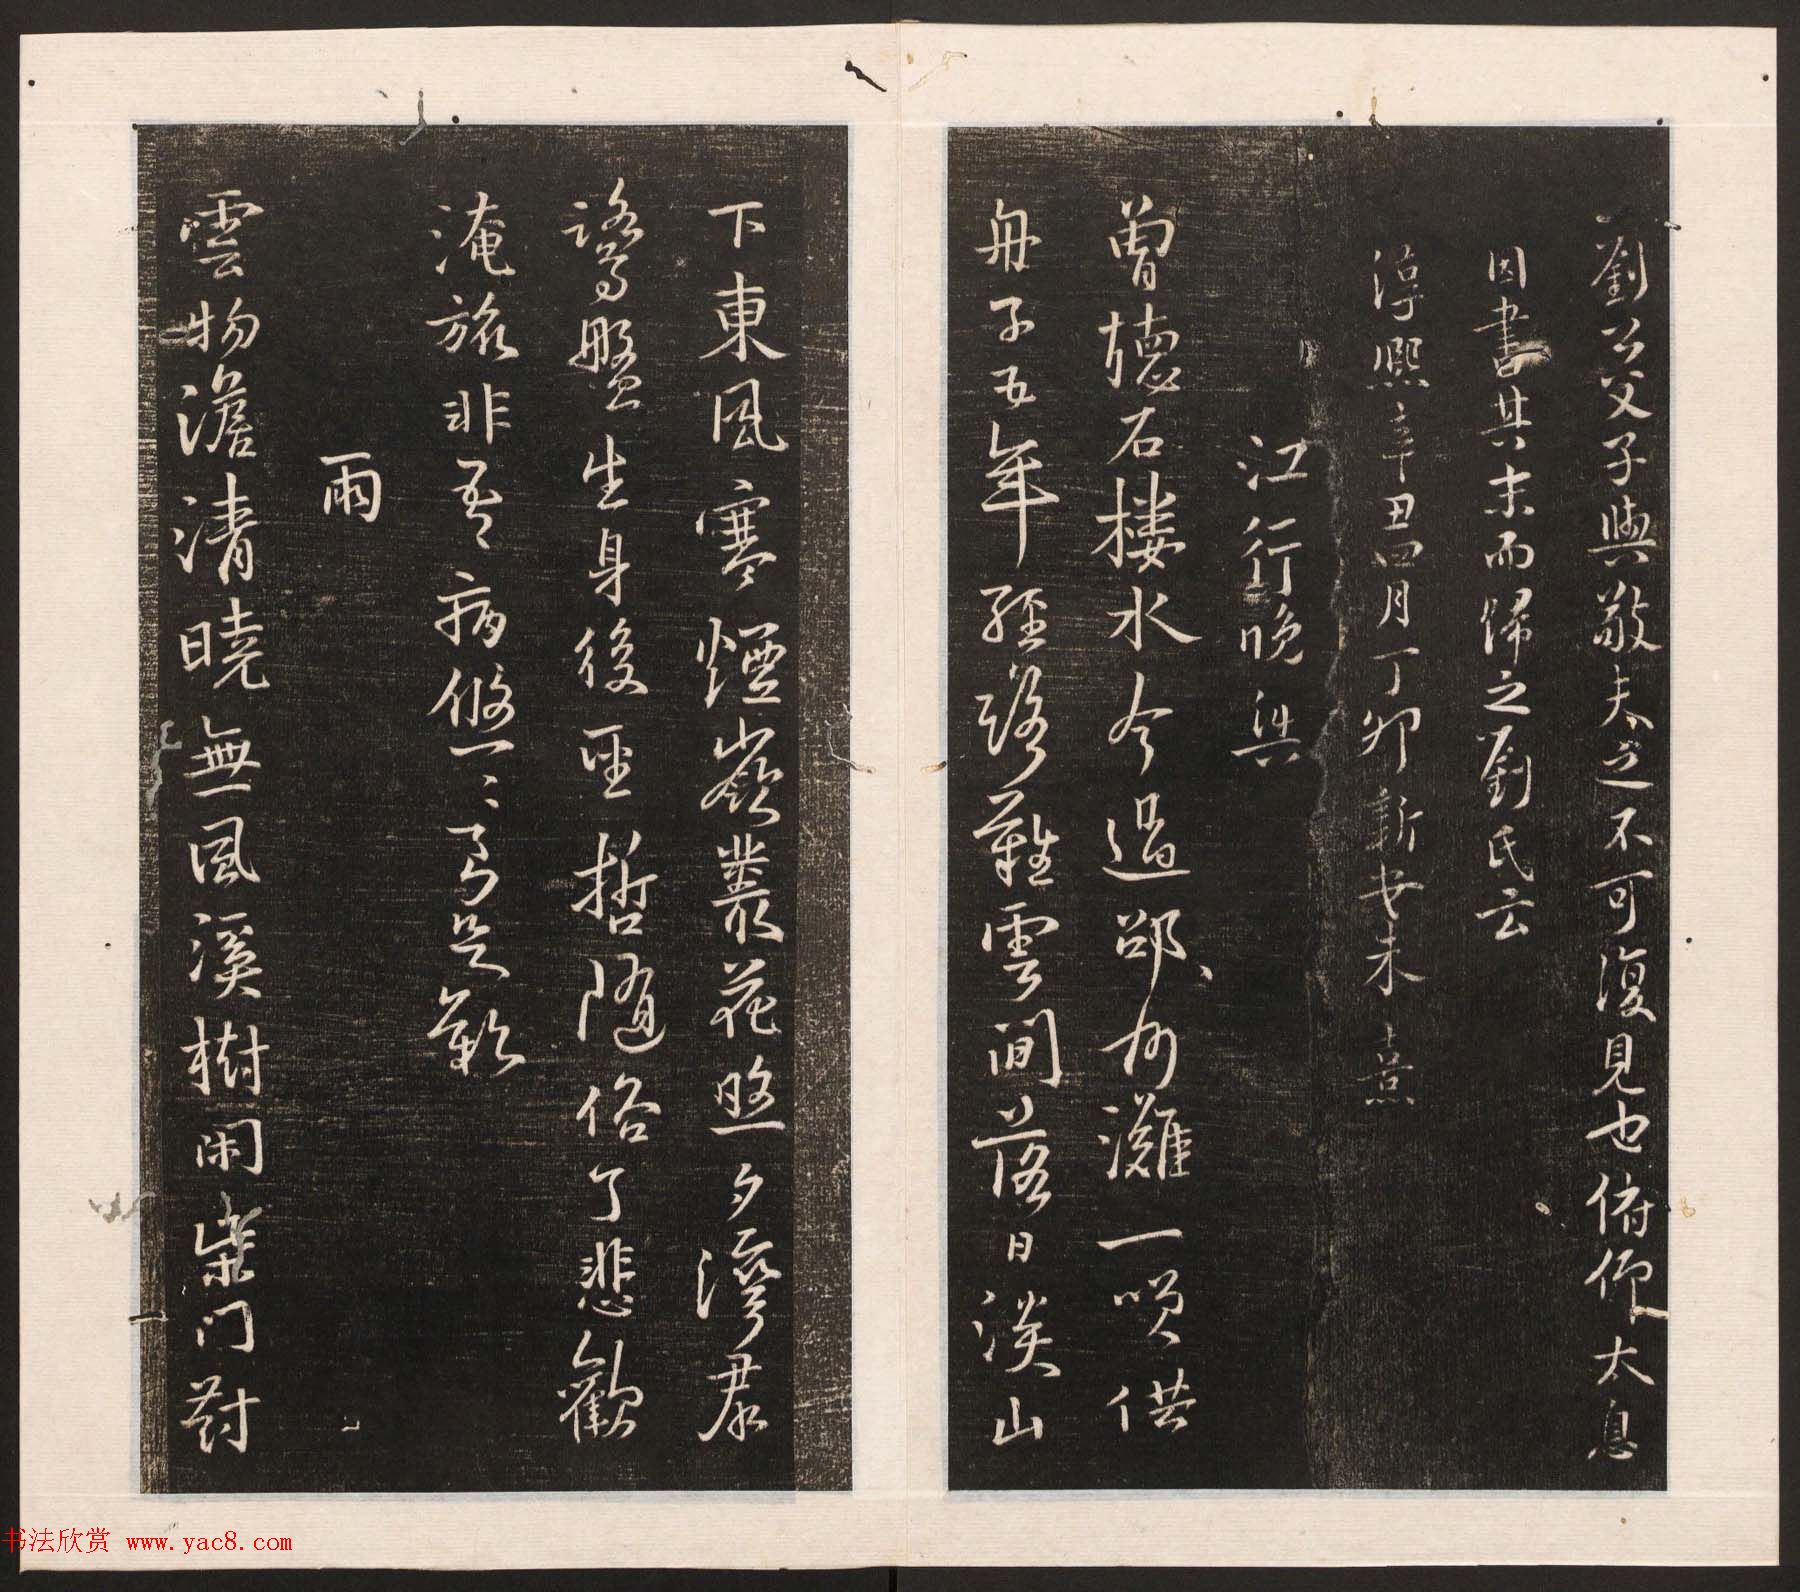 劉公父子與敬夫之不可復見也俯仰太息
因書其末而歸之劉氏云
淳熙辛丑四月丁卯新安朱熹
江行晚興
曾聽石樓水今過邵州灘一咲供
舟子五年經路難雲間落日淡山
下東風寒煙嶺叢花照夕灣羣
鷺盤生身後聖哲隨俗了悲歡
淹旅非吾病悠〻良足歎
雨
雲物澹清曉無風溪樹閑柴門對
书法欣赏 www.yac8.com